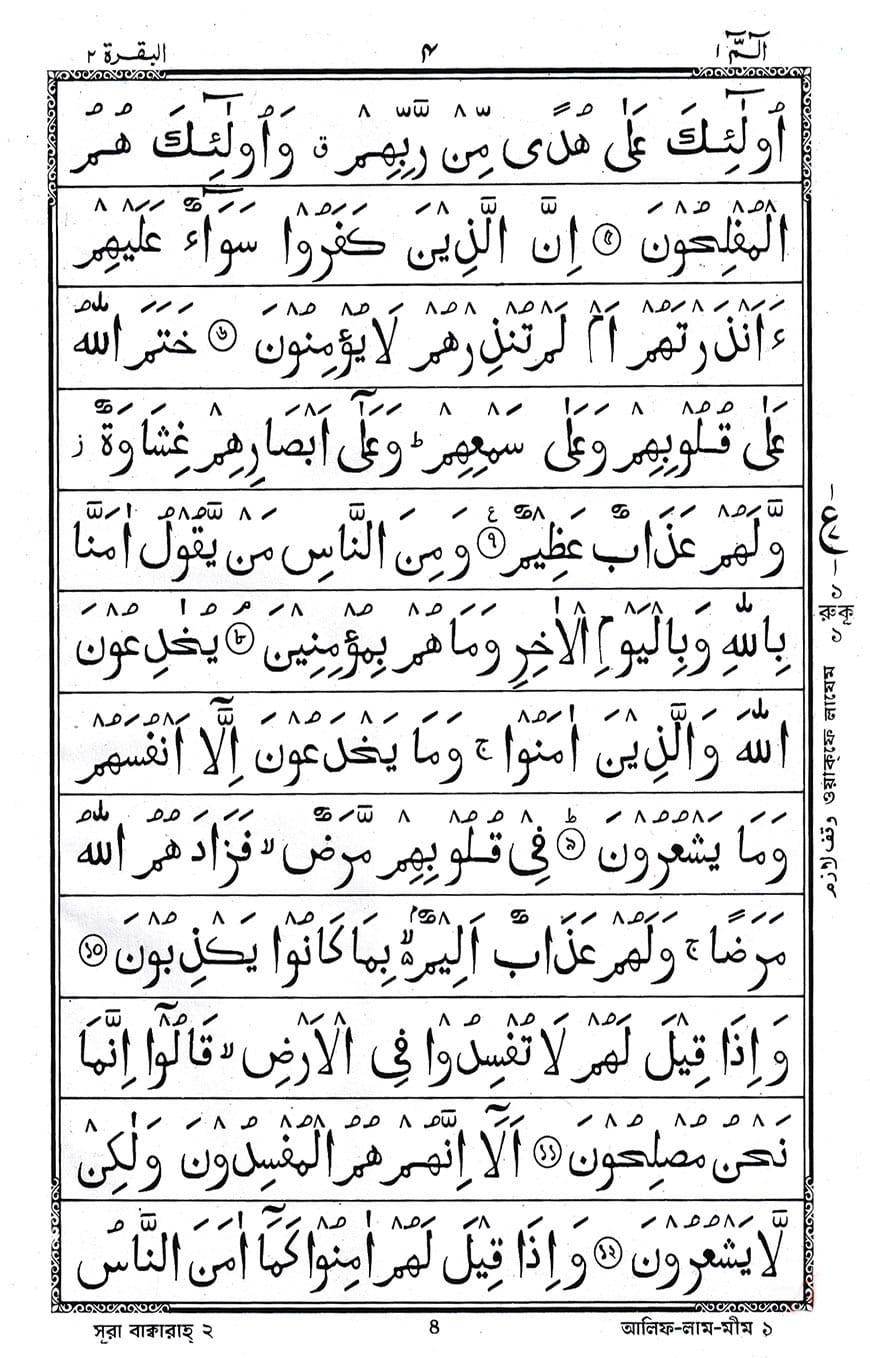 الٓمّٓ ١
٤
البقرة ٢
اُولٰٓئِكَ عَلٰى هُدًى مِّنْ رَّبِّهِمْ ق وَاُولٰٓئِكَ هُمُ
الْمُفْلِحُوْنَ ৫ اِنَّ الَّذِيْنَ كَفَرُوْا سَوَآءٌ عَلَيْهِمْ
ءَاَنْذَرْتَهُمْ اَمْ لَمْ تُنْذِرْهُمْ لَا يُؤْمِنُوْنَ ৬ خَتَمَ اللّٰهُ
عَلٰى قُلُوْبِهِمْ وَعَلٰى سَمْعِهِمْ ط وَعَلٰٓى اَبْصَارِهِمْ غِشَاوَةٌ ز
وَّلَهُمْ عَذَابٌ عَظِيْمٌ ৭ ع وَمِنَ النَّاسِ مَنْ يَّقُوْلُ اٰمَنَّا
بِاللّٰهِ وَبِالْيَوْمِ الْاٰخِرِ وَمَا هُمْ بِمُؤْمِنِيْنَ ৮ م يُخٰدِعُوْنَ
اللّٰهَ وَالَّذِيْنَ اٰمَنُوْا ج وَمَا يَخْدَعُوْنَ اِلَّآ اَنْفُسَهُمْ
وَمَا يَشْعُرُوْنَ ৯ ط فِيْ قُلُوْبِهِمْ مَّرَضٌ لا فَزَادَهُمُ اللّٰهُ
مَرَضًا ج وَلَهُمْ عَذَابٌ اَلِيْمٌ ۢ لا بِمَا كَانُوْا يَكْذِبُوْنَ ১০
وَاِذَا قِيْلَ لَهُمْ لَا تُفْسِدُوْا فِى الْاَرْضِ لا قَالُوْٓا اِنَّمَا
نَحْنُ مُصْلِحُوْنَ ১১ اَلَآ اِنَّهُمْ هُمُ الْمُفْسِدُوْنَ وَلٰكِنْ
لَّا يَشْعُرُوْنَ ১২ وَاِذَا قِيْلَ لَهُمْ اٰمِنُوْا كَمَآ اٰمَنَ النَّاسُ
ع
রুকু ১
১
وقف لازم ওয়াক্‌ফে লাযেম
সূরা বাক্বারাহ্ ২
৪
আলিফ-লাম-মীম ১